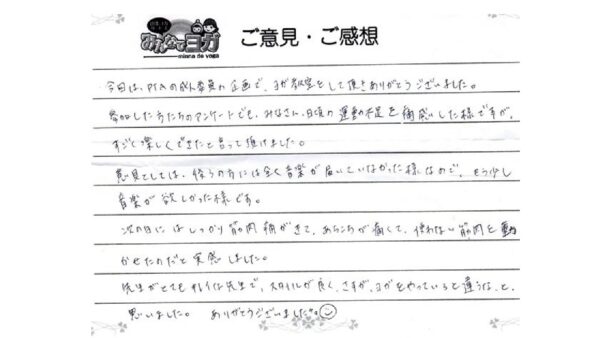 みんなでヨガ
minna de yoga
ご意見・ご感想
今日は、PTAの成人委員の企画で、ヨガ教室をして頂きありがとうございました。
参加した方たちのアンケートでも、みなさん、日頃の運動不足を痛感した様ですが、
すごく楽しくできたと言って頂けました。
意見としては、後ろの方には全く音楽が届いていなかった様なので、もう少し
音楽が欲しかった様です。
次の日にはしっかり筋肉痛がきて、あちこちが痛くて、使わない筋肉を動
かせたのだと実感しました。
先生がとても な先生で、スタイルが良く、さすが、ヨガをやっていると違うな、と、
思いました。 ありがとうございました。